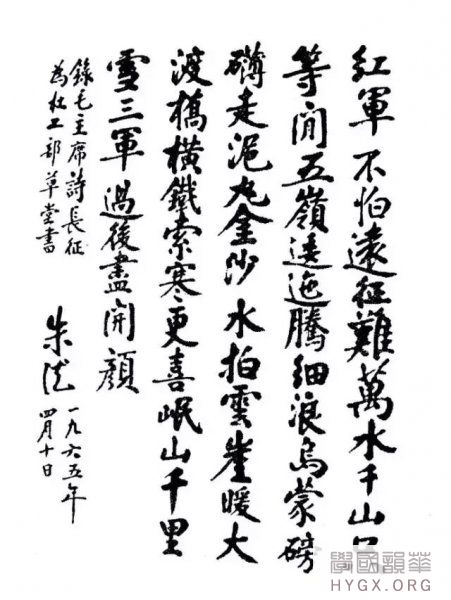 紅軍不怕遠征難萬水千山只
等閒五嶺逶迤騰細浪烏蒙磅
礴走泥丸金沙水拍雲崖暖大
渡橋橫鐵索寒更喜岷山千里
雪三軍過後盡開顏
錄毛主席詩長征
為杜工部草堂書
朱德
一九六五年
四月十日
學國韻華
HYGX.ORG